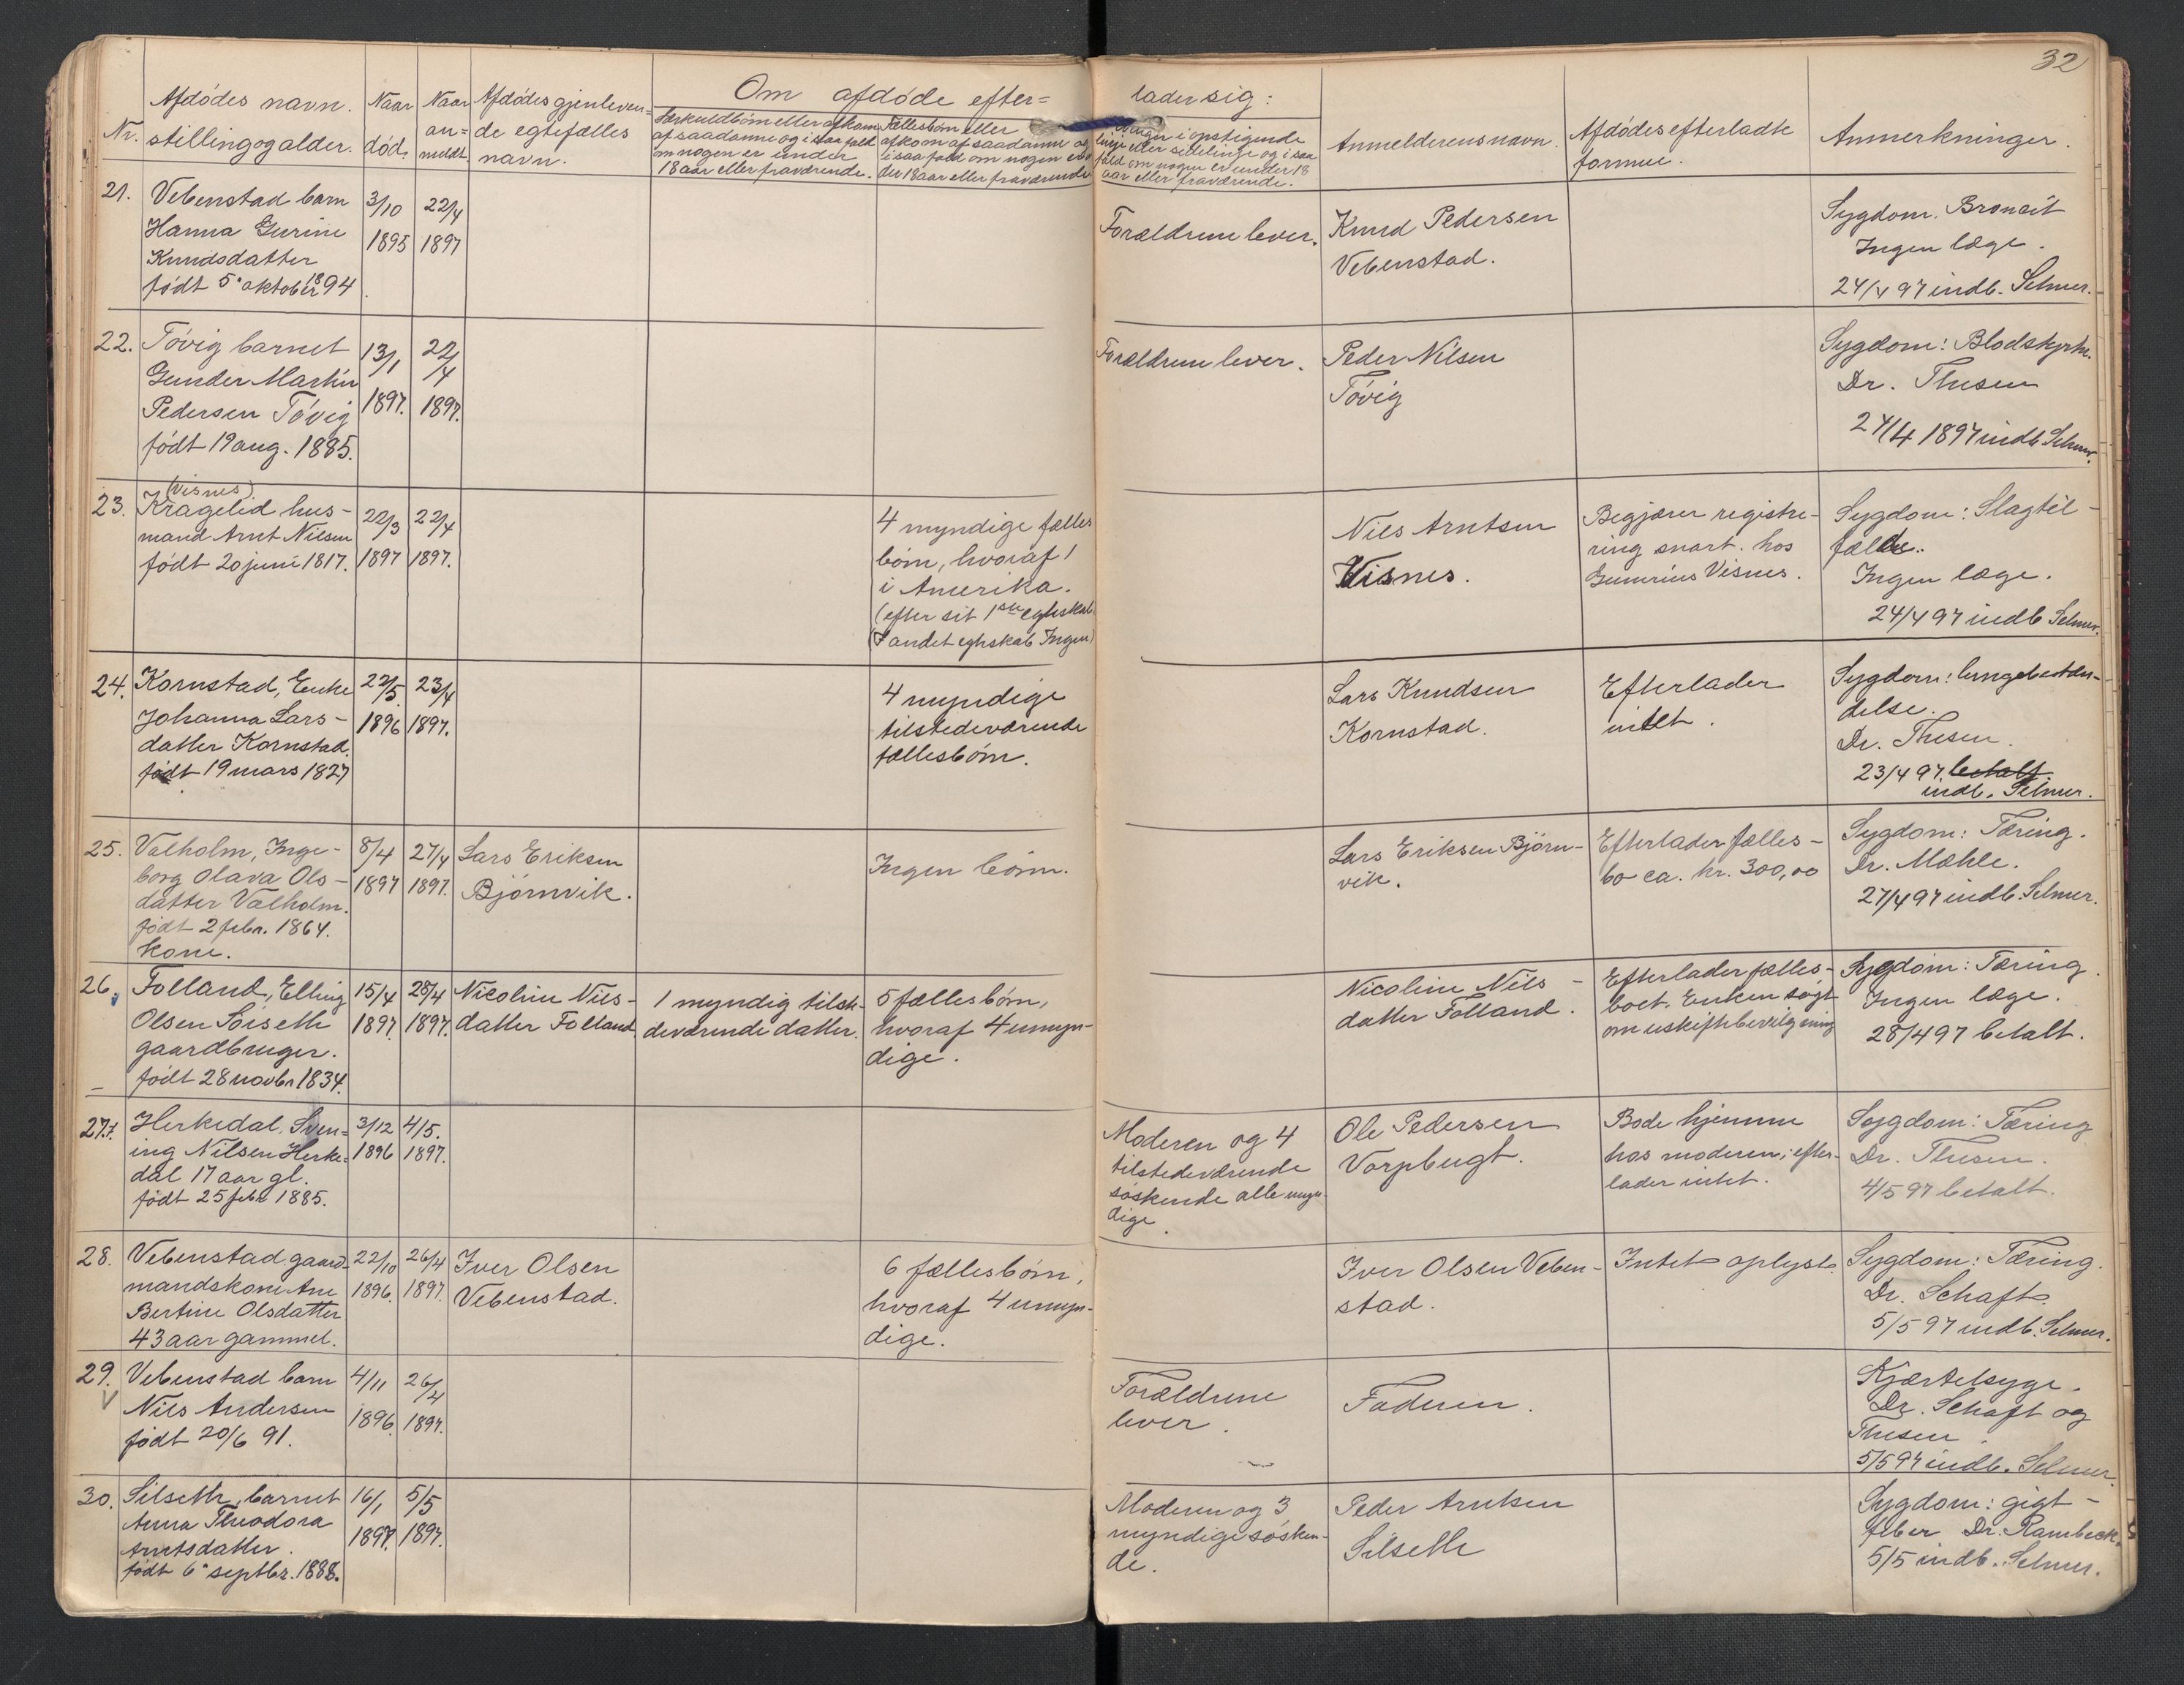 32
Nr.
Afdödes navn.
stilling og alder.
Naar
död.
Naar
an=
meldt.
Afdödes gjenleven=
de egtefælles
navn.
Om afdöde efter=
lader sig:
Særkuldbörn eller afkom
af saadanne og i saa fald
om nogen er under
18 aar eller fraværende.
Fællesbörn eller
afkom af saadanne og
i saa fald om nogen er un
der 18 aar eller fraværende
i opstigende
linje eller sidelinje og i saa
fald om nogen er under 18
aar eller fraværende.
Anmelderens navn.
Afdödes efterladte
formue.
Anmerkninger.
21.
Vebenstad barn
Hanna Gurine
Knudsdatter
födt 5' oktober 1894
3/10
1895
22/4
1897
Forældrene lever.
Knud Pedersen
Vebenstad.
Sygdom. Broncit
Ingen læge.
24/4 97 indb. Selmer.
22.
Tövig barnet
Gunder Martin
Pedersen Tövig
födt 19 aug. 1885.
13/1
1897.
22/4
1897.
Forældrene lever.
Peder Nilsen
Tövig
Sygdom: Blodstyrtn.
Dr. Thesen
24/4 1897 indb Selmer.
23.
(Visnes)
Kragelid hus-
mand Arnt Nilsen
födt 20 juni 1817.
22/3
1897
22/4
1897.
4 myndige fælles
börn, hvoraf 1
i Amerika.
(efter sit 1ste egteskab
(I andet egteskab Ingen)
Nils Arntsen
Visnes.
Begjærer registre-
ring snart. hos
Gunnrius Visnes.
Sygdom: Slagtil-
fælde.
Ingen læge.
24/4 97 indb Selmer.
24.
Kornstad, Enke
Johanna Lars-
datter Kornstad.
födt 19 mars 1827
22/5
1896
23/4
1897.
4 myndige
tilstedeværende
fællesbörn.
Lars Knudsen
Kornstad.
Efterlader
intet.
Sygdom: lungebetæn-
delse.
Dr. Thesen.
23/4 97. betalt
indb. Selmer.
25.
Valholm, Inge-
borg Olava Ols-
datter Valholm.
födt 2 febr. 1864.
kone.
8/4
1897
27/4
1897.
Lars Eriksen
Björnvik.
Ingen börn.
Lars Eriksen Björn-
vik.
Efterlader fælles-
bo ca. kr. 300,00
Sygdom: Tæring.
Dr. Mæhle.
27/4 97 indb. Selmer.
26.
Folland, Elling
Olsen Söiseth
gaardbruger.
födt 28 novbr 1834.
15/4
1897.
28/4
1897.
Nicoline Nils-
datter Folland.
1 myndig tilste-
deværende datter.
5 fællesbörn,
hvoraf 4 umyn-
dige.
Nicoline Nils-
datter Folland.
Efterlader fælles-
boet. Enken sögt
om uskiftebevilgning
Sygdom: Tæring.
Ingen læge.
28/4 97 betalt.
27.
Herkedal, Sven=
ing Nilsen Herke=
dal 17 aar gl.
födt 25 febr 1885.
3/12
1896
4/5.
1897.
Moderen og 4
tilstedeværende
söskende alle myn-
dige.
Ole Pedersen
Vorpbugt.
Bode hjemme
hos moderen; efter-
lader intet.
Sygdom: Tæring
Dr. Thesen.
4/5 97 betalt.
28.
Vebenstad gaard-
mandskone Ane
Bertine Olsdatter
43 aar gammel.
22/10
1896.
26/4
1897.
Iver Olsen
Vebenstad.
6 fællesbörn,
hvoraf 4 umyn-
dige.
Iver Olsen Veben-
stad.
Intet oplyst.
Sygdom: Tæring.
Dr. Schaft
5/5 97 indb. Selmer.
29.
Vebenstad barn
Nils Andersen
födt 20/6 91.
4/11
1896
26/4
1897.
Forældrene
lever.
Faderen.
Kjærtelsyge.
Dr. Schaft og
Thesen
5/5 97 indb. Selmer.
30.
Silseth, barnet
Anna Theodora
Arntsdatter.
födt 6' septbr. 1888.
16/1
1897.
5/5
1897.
Moderen og 3
myndige sösken-
de.
Peder Arntsen
Silseth
Sygdom: gigt-
feber Dr. Rambeck.
5/5 indb. Selmer.